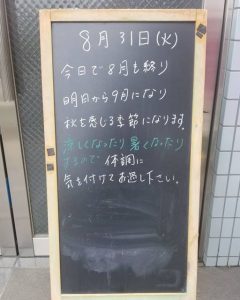 8月31日(火)
今日で8月も終り
明日から9月になり
秋を感じる季節になります。
涼しくなったり暑くなったり
するので 体調に
気を付けてお過し下さい。